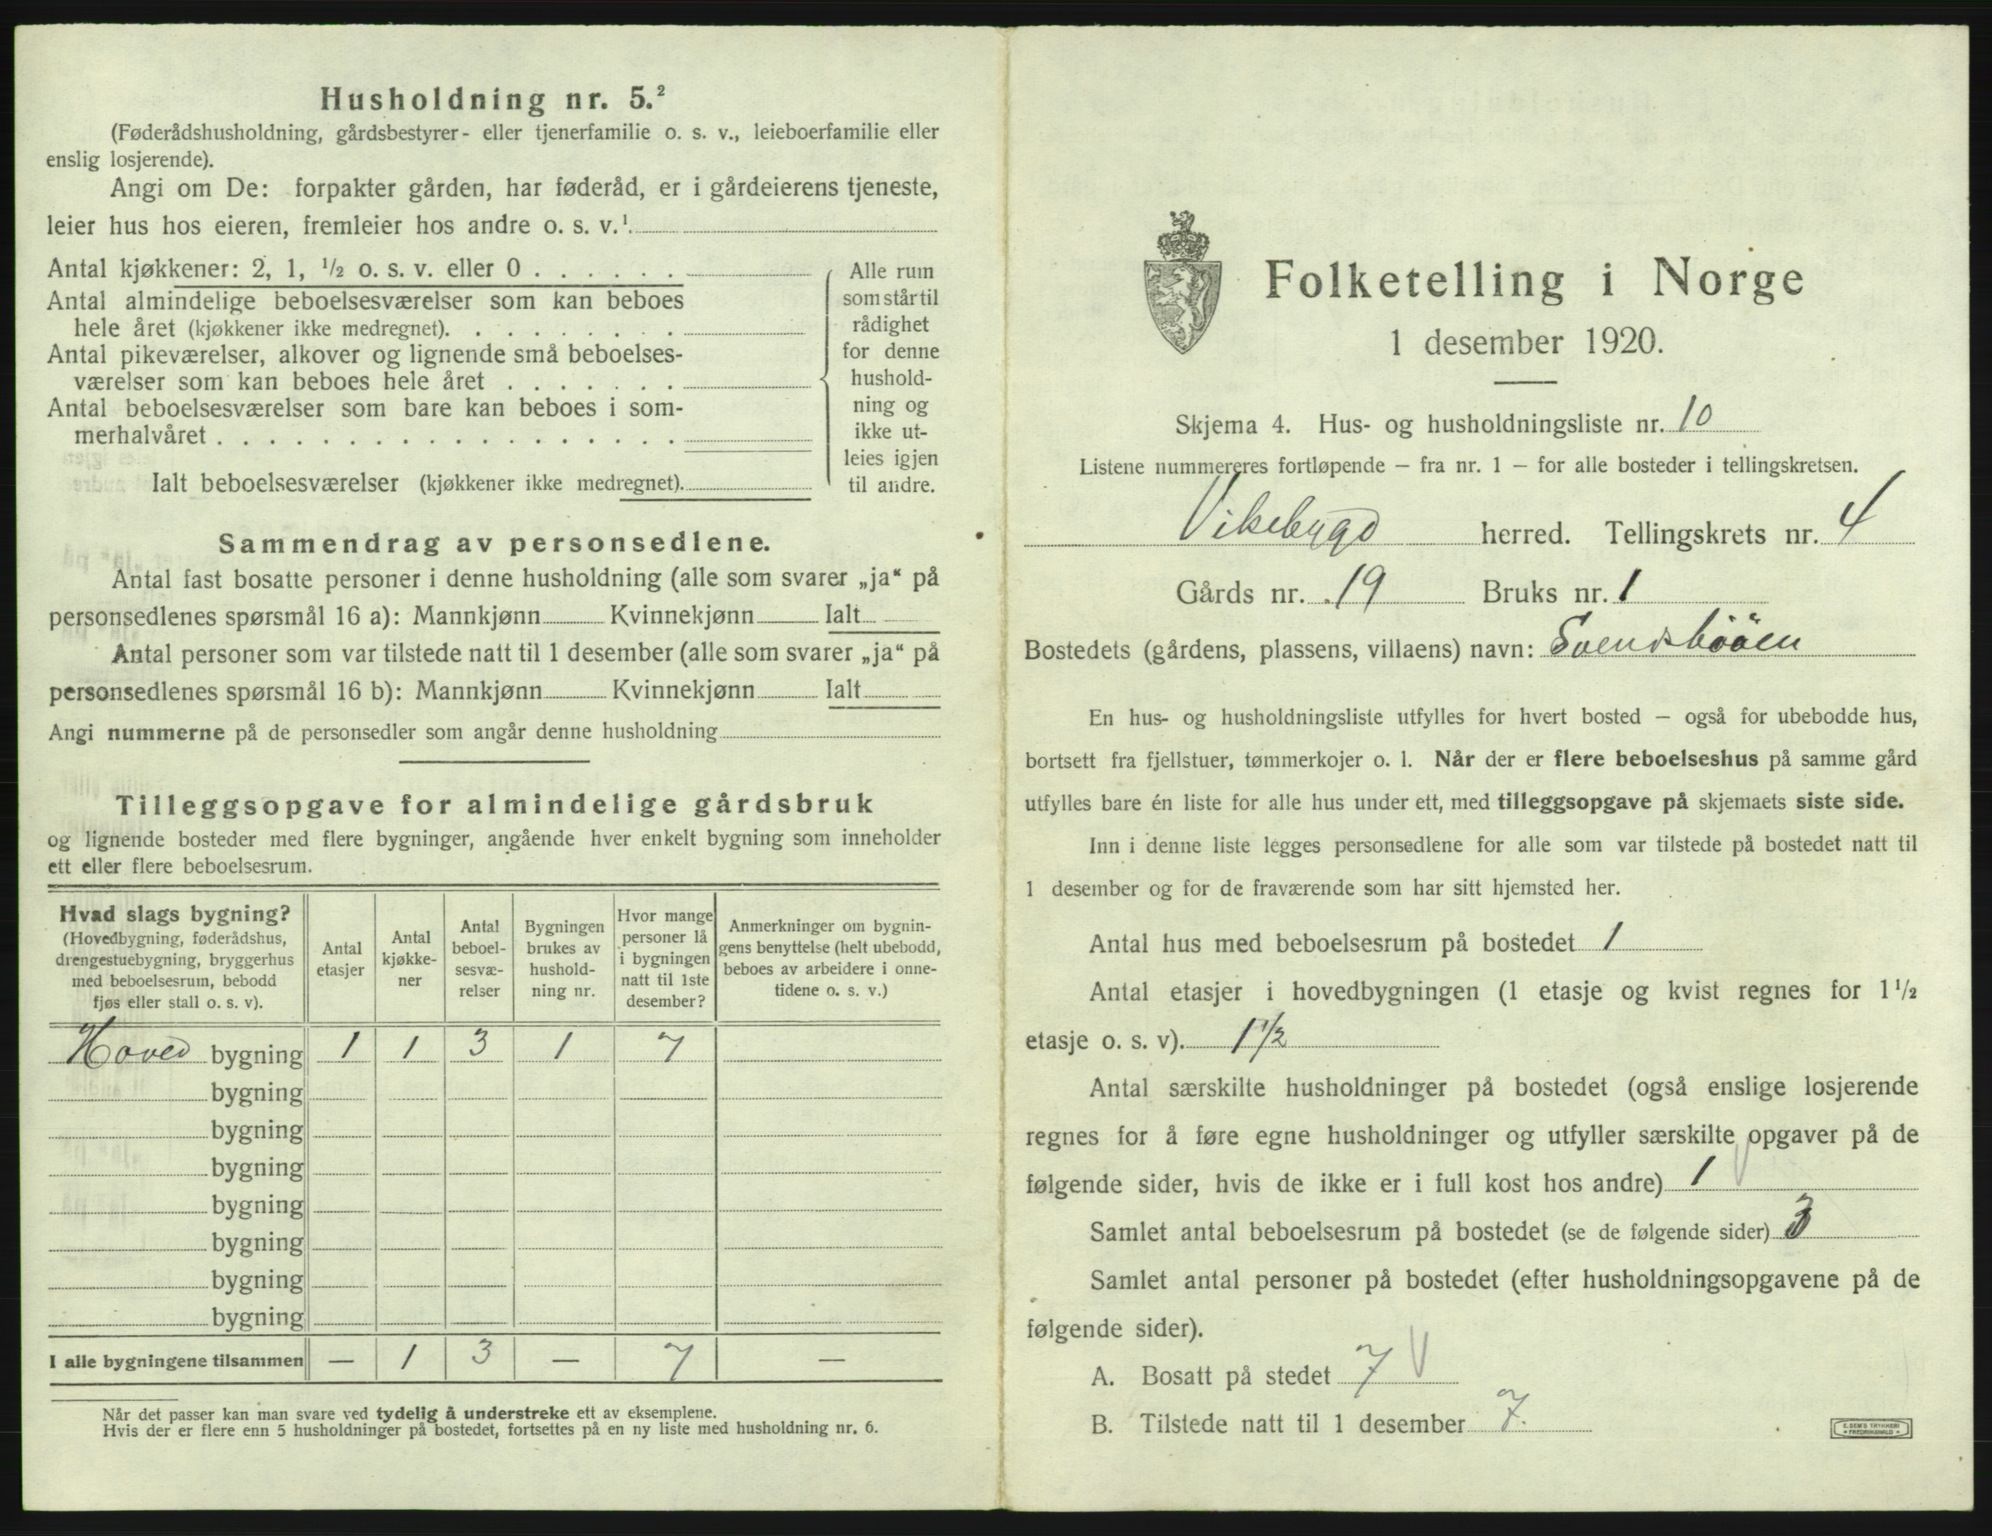 Husholdning nr. 5.²
(Føderådshusholdning, gårdsbestyrer- eller tjenerfamilie o. s. v., leieboerfamilie eller
enslig losjerende).
Angi om De: forpakter gården, har føderåd, er i gårdeierens tjeneste,
leier hus hos eieren, fremleier hos andre o. s. v.¹
Antal kjøkkener: 2, 1, ½ o. s. v. eller 0 . . . . . .
Antal almindelige beboelsesværelser som kan beboes
hele året (kjøkkener ikke medregnet). . . . . . . . .
Antal pikeværelser, alkover og lignende små beboelses-
værelser som kan beboes hele året . . . . . . .
Antal beboelsesværelser som bare kan beboes i som-
merhalvåret . . . . . . . . . . . . . . . . . .
Ialt beboelsesværelser (kjøkkener ikke medregnet).
Alle rum
som står til
rådighet
for denne
hushold-
ning og
ikke ut-
leies igjen
til andre.
Sammendrag av personsedlene.
Antal fast bosatte personer i denne husholdning (alle som svarer „ja“ på
personsedlenes spørsmål 16 a): Mannkjønn Kvinnekjønn Ialt
Antal personer som var tilstede natt til 1 desember (alle som svarer „ja“ på
personsedlenes spørsmål 16 b): Mannkjønn Kvinnekjønn Ialt
Angi nummerne på de personsedler som angår denne husholdning
Tilleggsopgave for almindelige gårdsbruk
og lignende bosteder med flere bygninger, angående hver enkelt bygning som inneholder
ett eller flere beboelsesrum.
Hvad slags bygning?
(Hovedbygning, føderådshus,
drengestuebygning, bryggerhus
med beboelsesrum, bebodd
fjøs eller stall o. s. v).
Antal
etasjer
Antal
kjøkke-
ner
Antal
beboel-
sesvæ-
relser
Bygningen
brukes av
hushold-
ning nr.
Hvor mange
personer lå
i bygningen
natt til 1ste
desember?
Anmerkninger om bygnin-
gens benyttelse (helt ubebodd,
beboes av arbeidere i onne-
tidene o. s. v.)
Hoved bygning 1 1 3 1 7
bygning
bygning
bygning
bygning
bygning
bygning
bygning
I alle bygningene tilsammen — 1 3 — 7 —
Når det passer kan man svare ved tydelig å understreke ett av eksemplene.
Hvis der er flere enn 5 husholdninger på bostedet, fortsettes på en ny liste med husholdning nr. 6.
Folketelling i Norge
1 desember 1920.
Skjema 4. Hus- og husholdningsliste nr. 10
Listene nummereres fortløpende – fra nr. 1 – for alle bosteder i tellingskretsen.
Vikebygd herred. Tellingskrets nr. 4
Gårds nr. 19 Bruks nr. 1
Bostedets (gårdens, plassens, villaens) navn: Svendsbööen
En hus- og husholdningsliste utfylles for hvert bosted – også for ubebodde hus,
bortsett fra fjellstuer, tømmerkojer o. l. Når der er flere beboelseshus på samme gård
utfylles bare én liste for alle hus under ett, med tilleggsopgave på skjemaets siste side.
Inn i denne liste legges personsedlene for alle som var tilstede på bostedet natt til
1 desember og for de fraværende som har sitt hjemsted her.
Antal hus med beboelsesrum på bostedet 1
Antal etasjer i hovedbygningen (1 etasje og kvist regnes for 1½
etasje o. s. v). 1½
Antal særskilte husholdninger på bostedet (også enslige losjerende
regnes for å føre egne husholdninger og utfyller særskilte opgaver på de
følgende sider, hvis de ikke er i full kost hos andre) 1
Samlet antal beboelsesrum på bostedet (se de følgende sider) 3
Samlet antal personer på bostedet (efter husholdningsopgavene på de
følgende sider).
A. Bosatt på stedet 7
B. Tilstede natt til 1 desember 7.
E. SEM'S TRYKKERI
FREDRIKSHALD